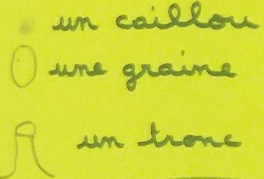 un caillou
une graine
un tronc